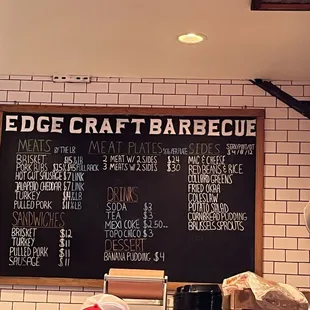 EDGE CRAFT BARBECUE
MEATS BY THE LB
BRISKET
PORK RIBS FULL RACK
HOT GUT SAUSAGE $7 LINK
JALAPENO CHEDDAR $7 LINK
TURKEY
PULLED PORK
SANDWICHES
BRISKET $12
TURKEY $11
PULLED PORK $11
SAUSAGE $11
MEAT PLATES
2 MEAT W/ 2 SIDES $24
3 MEATS W/ 2 SIDES $30
DRINKS
SODA $3
TEA $3
MEXI COKE $2.50
TOPO CHICO $3
DESSERT
BANANA PUDDING $4
SIDES
$4/8/12
MAC & CHEESE
RED BEANS & RICE
COLLARD GREENS
FRIED OKRA
COLESLAW
POTATO SALAD
CORNBREAD PUDDING
BRUSSELS SPROUTS